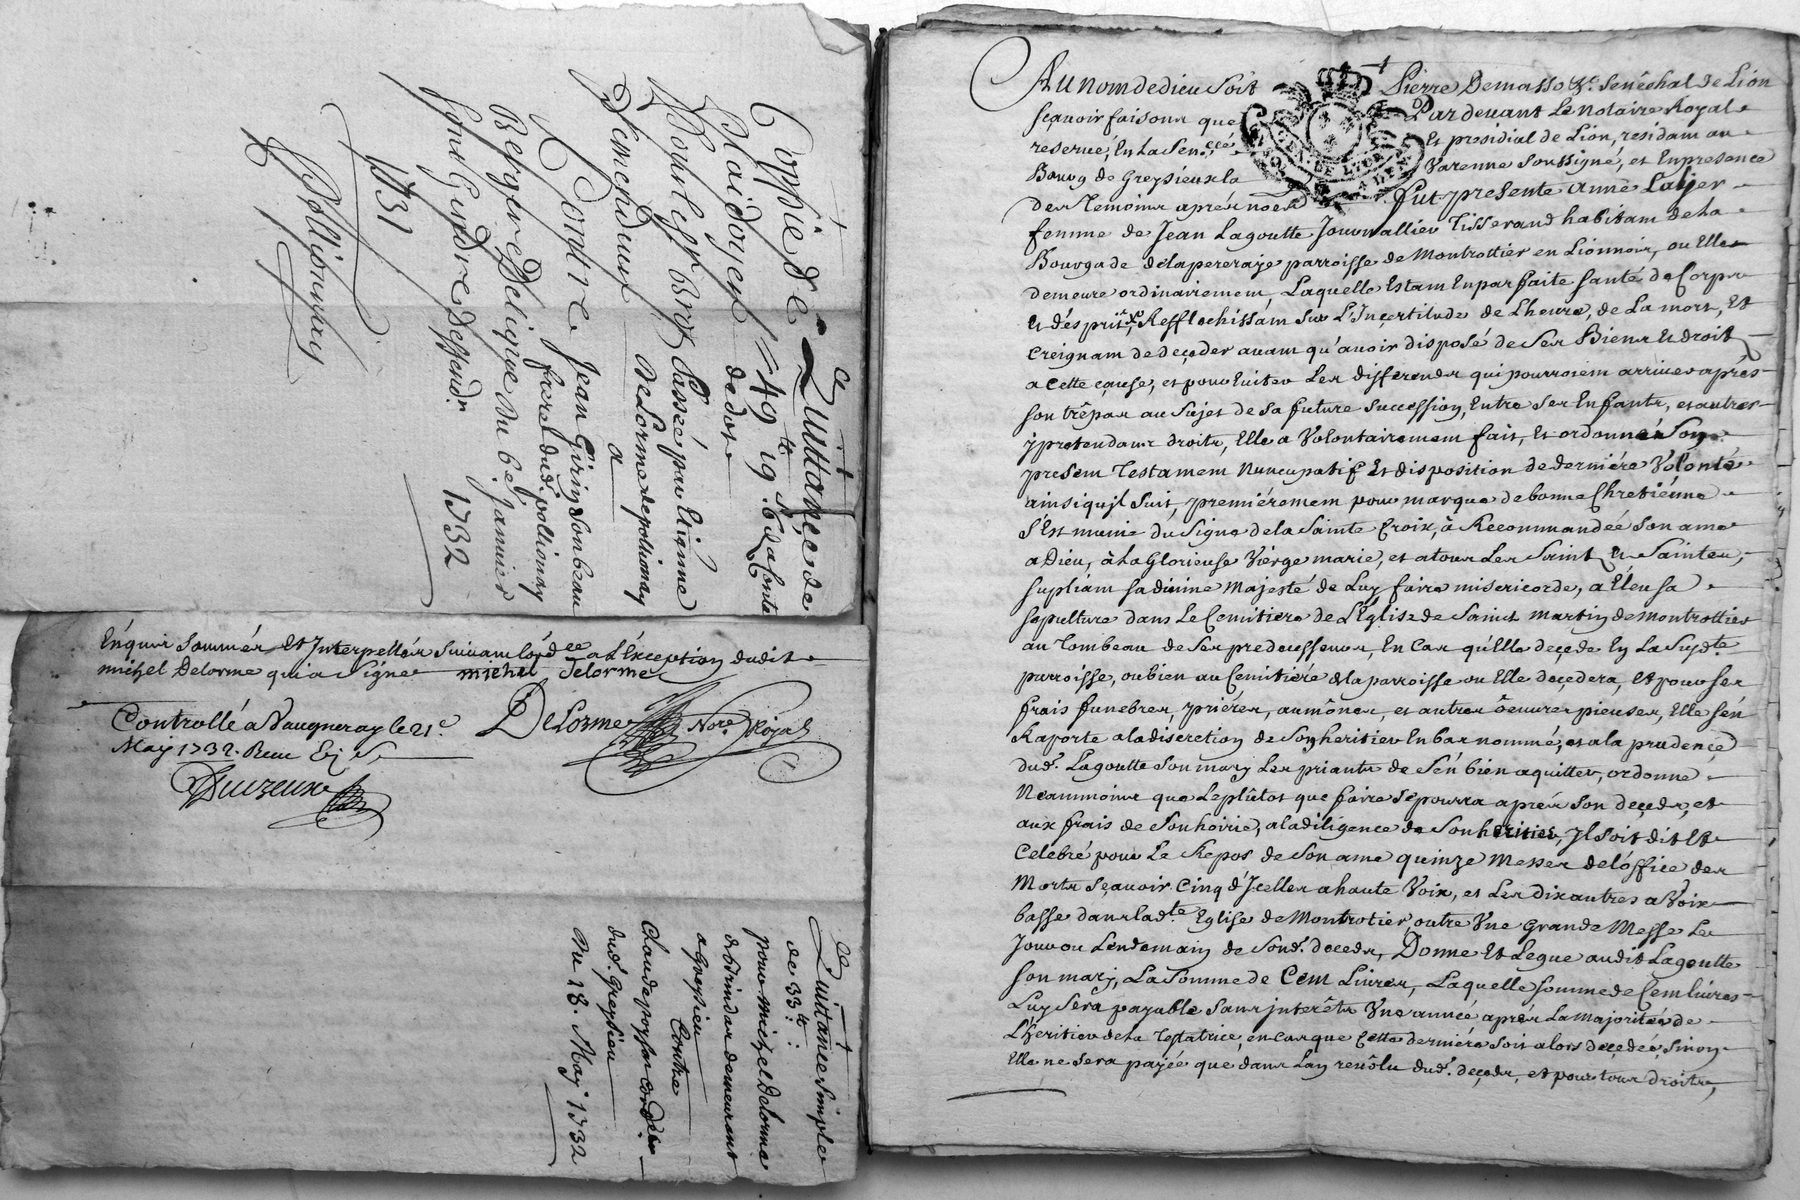 Coppie de Quittance de
Plaidoyer 49 tt 19 s. 6 d. a Compte
de dot
Pour less. Brot Passé par Etienne
Demendeur Delorme de pollionay
a
Contre Jean Girin son beau
frere dud. pollionay
Besgeire Deligne Du 6e. Janvier
sont Gendre Deffendr. 1732
1731
Pollionnay
Enquis sommés Et Interpellés suivant lord.ce a l'Exception dudit
michel Delorme qui a signé michel delorme
Controllé à Vaugneray le 21e.
May 1732. Receu
DeLorme Nore. Royal
Quittance simple
de 33 tt:
pour michel Delorme
demeurant
a Greysieu
Contre
Claude
dud. Greysieu
Du 18. May 1732
Au nom de dieu soit Pierre Demasso Sr. Senéchal de Lion
sçavoir faisons que Par devant Le notaire Royal
reservé, En La Sen.cée Et presidial de Lion, residant au
Bourg de Greysieux la Varenne Soussigné, et En presence
des Temoins apres nommés Fut presente anne
femme de Jean Lagoutte Journallier Tisserand habitant de La
Bourgade de lapereraije parroisse de Montrottier en Lionnois, ou Elle
demeure ordinairement, Laquelle Estant En parfaite santé de Corps
et d'esprit, Refflechissant sur L'Inçertitude de L'heure, de La mort, Et
Creignant de deçeder avant qu'avoir disposé de Ses Biens et droit
a Cette cause, et pour Euiter Les differends qui pourroient arriver après
son trépas au sujet de sa future succession, Entre ses Enfants, et autres
y pretendans droits, Elle a Volontairement fait, Et ordonné Son
present Testament nuncupatif Et disposition de derniére Volonté
ainsi qu'jl suit, premiérement pour marque de bonne Chretiénne
s'Est munie du Signe de la Sainte Croix, à Recommandée son ame
a Dieu, à La Glorieuse Viérge marie, et a tous Les Saints et Saintes,
supliant sa divine Majesté de Luy faire misericorde, a Eleu sa
sepulture dans Le Cemitiere de L'Eglise de Saint Martin de Montrottier
au Tombeau de Ses predecesseurs, En Cas qu'Elle deçede En La Susd.te
parroisse, ou bien au Cemitiére de la parroisse ou Elle deçedera, Et pour ses
frais funebres, priéres, aumônes, et autres oeuvres pieuses, Elle s'én
Raporte a la discretion de Son heritier En bas nommé, et a la prudençe
dud. Lagoutte Son mary Les priants de s'én bien aquitter, ordonne
Neammoins que Le plûtost que faire se pourra aprés son deçeds, et
aux frais de son hoirie, a la diligence de Son heritier, jl soit dit Et
Celebré pour Le Repos de Son ame quinze Messes de l'óffice des
Morts sçavoir Cinq d'Jcelles a haute Voix, et Les dix autres a Voix
basse dans lad.te Eglise de Montrotier, outre Une Grande Messe Le
Jour ou Lendemain de Sond. deceds, Donne Et Legue audit Lagoutte
son mary, La Somme de Cent Livres, Laquelle somme de Cent livres
Luy Sera payable Sans jnterêts Une année aprés La majorité de
L'heritier de La Testatrice, en Cas que Cette derniére soit alors deçedée, sinon
Elle ne Sera payée que dans L'an revôlu dud. deçeds, et pour tous droits,